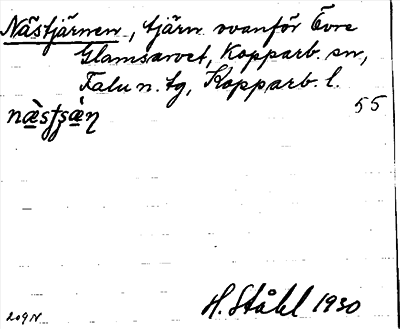 Nästjärnen, tjärn ovanför Övre
Glamsarvet, Kopparb. sn,
Falu n. tg, Kopparb. l.
55
H. Ståhl 1930
209N